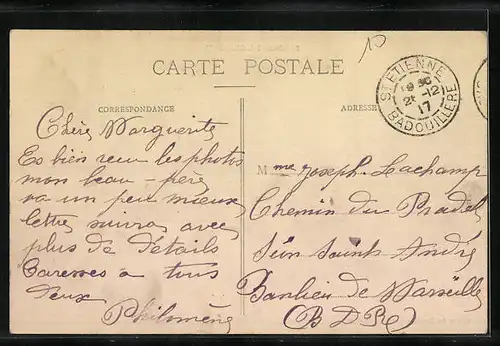 CARTE POSTALE
CORRESPONDANCE
ADRESSE
ST ETIENNE
25 -12
17
BADOUILLERE
Chère Marguerite
Es bien reçu les photos
mon beau-père
va un peu mieux
lettre suivra avec
plus de détails
Caresses a tous
deux
Philomène
Mme Joseph Lachamp
Chemin du Pradel
Saint André
Banlieu de Marseille
(B D Re)